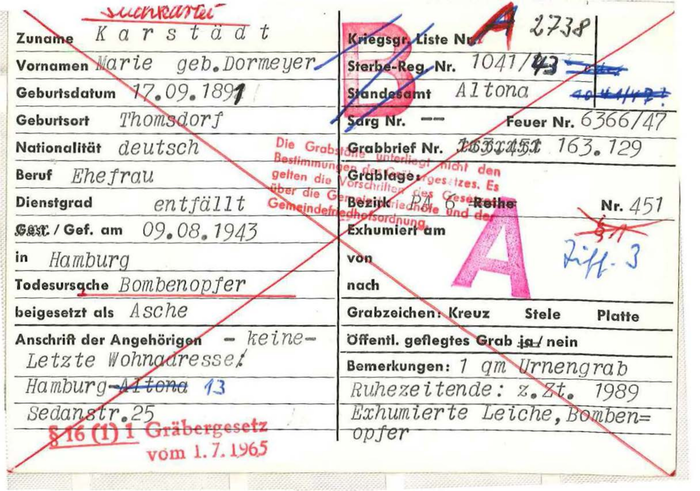 Suchkartei
Zuname Karstädt
Vornamen Marie geb.Dormeyer
Geburtsdatum 17.09.1891
Geburtsort Thomsdorf
Nationalität deutsch
Beruf Ehefrau
Dienstgrad entfällt
Gest./Gef. am 09.08.1943
in Hamburg
Todesursache Bombenopfer
beigesetzt als Asche
Anschrift der Angehörigen -keine-
Letzte Wohnadresse:
Hamburg-Altona 13
Sedanstr.25
§ 16 (1) 1 Gräbergesetz
vom 1.7.1965
B
Kriegsgr. Liste Nr. A 2738
Sterbe-Reg. Nr. 1041/43
Standesamt Altona
Sarg Nr. -- Feuer Nr. 6366/47
Grabbrief Nr. 163.129
Grablage:
Bezirk BA 6 Reihe Nr. 451
Exhumiert am
von
nach
Ziff. 3
A
Grabzeichen: Kreuz Stele Platte
Öffentl. gepflegtes Grab ja/nein
Bemerkungen: 1 qm Urnengrab
Ruhezeitende: z.Zt. 1989
Exhumierte Leiche,Bomben=
opfer
Die Grabstätte unterliegt nicht den
Bestimmungen des Gräbergesetzes. Es
gelten die Vorschriften des Gesetzes
über die Gemeindefriedhöfe und der
Gemeindefriedhofsordnung.